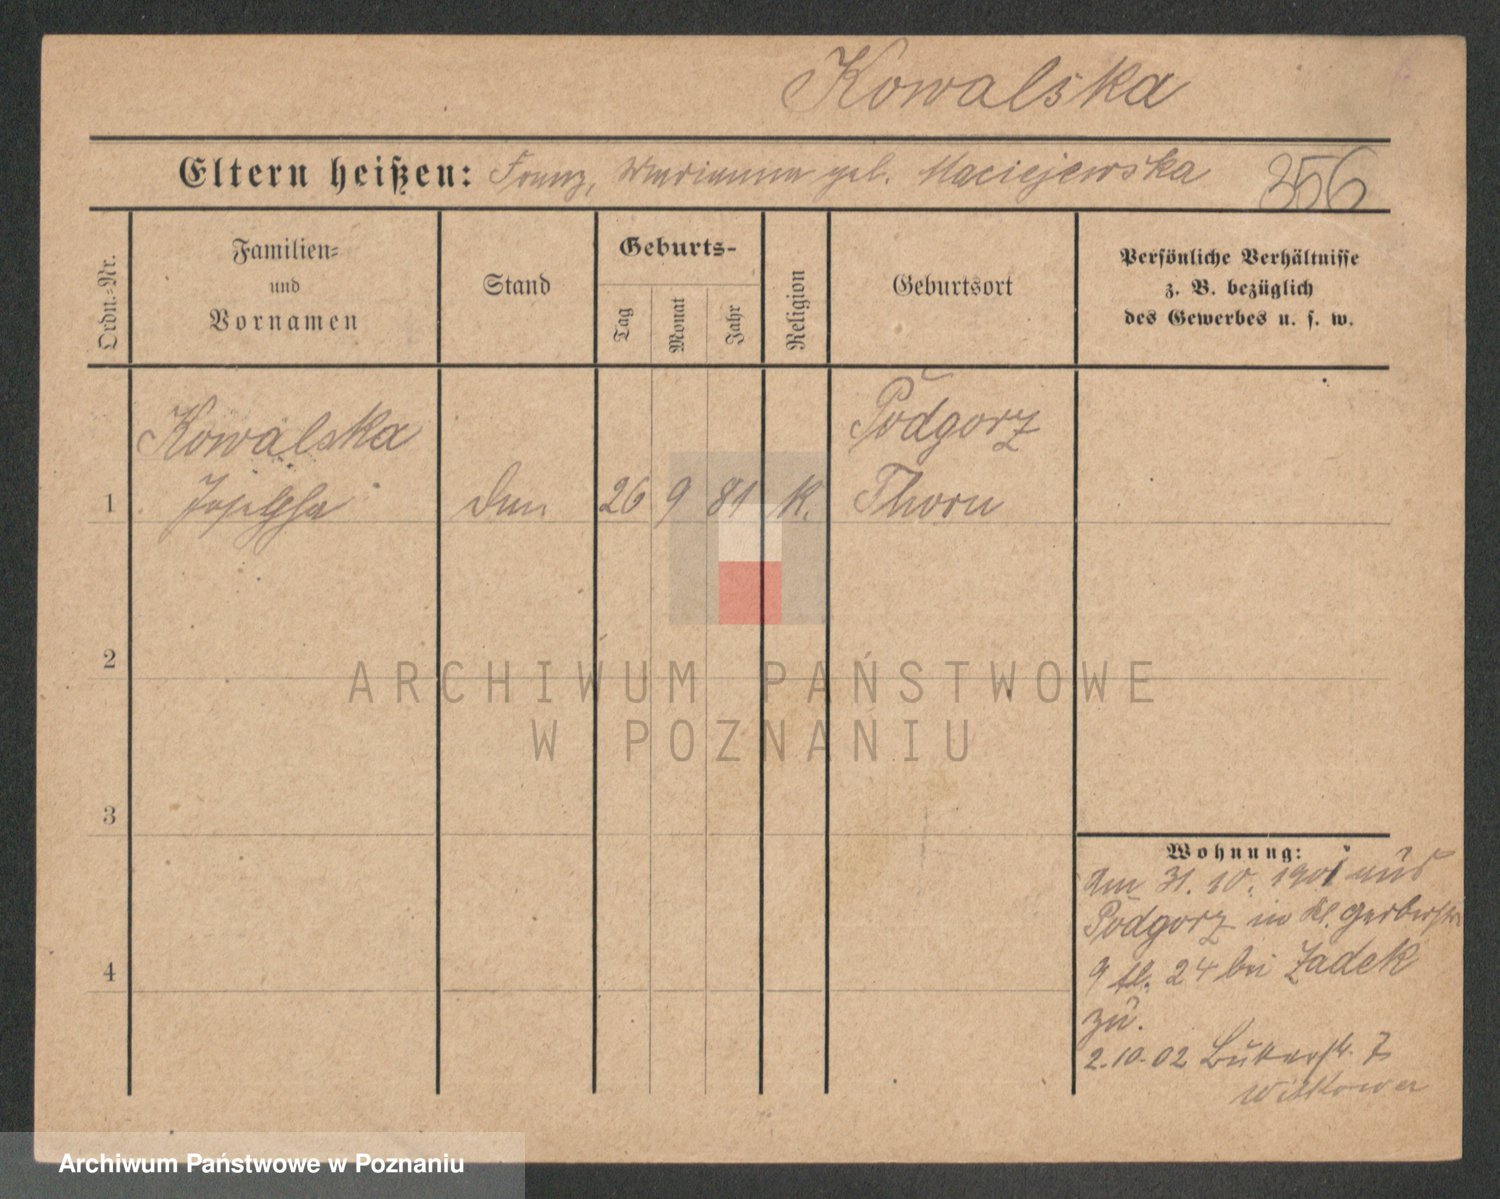 Kowalska
Eltern heißen: Franz, Marianna geb. Maciejewska 356
Ordn.=Nr.
Familien=
und
Vornamen
Stand
Geburts-
Tag
Monat
Jahr
Religion
Geburtsort
Persönliche Verhältnisse
z. B. bezüglich
des Gewerbes u. s. w.
Kowalska Podgorz
1 Josepha 26 9 81 K. Thorn
2
3
4
ARCHIWUM PAŃSTWOWE
W POZNANIU
Wohnung:
Am 31. 10. 1901 aus
Podgorz in Kl. Gerberstr
9 24 bei Zadek
zu.
2.10.02 Bukerstr. 7
Witkower
Archiwum Państwowe w Poznaniu